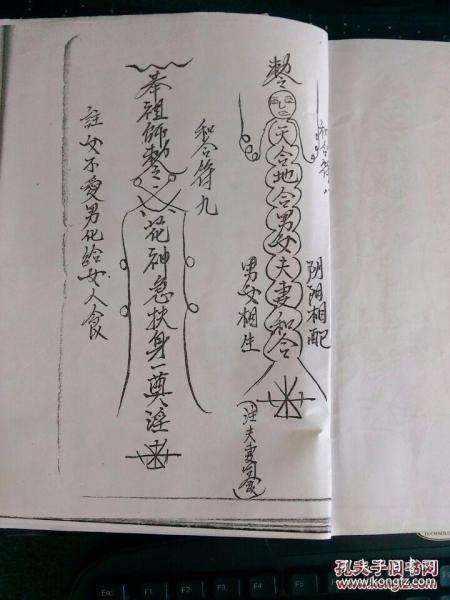 和合符八
敕令
天合地合男女夫妻和合
阴阳相配
男女相生
(注夫妻食)
和合符九
奉祖師敕令
花神急扶身一奠淫
註女不愛男化給女人食
孔夫子旧书网
www.kongfz.com
Esc
F1
F2
F3
F4
F5
F6
F7